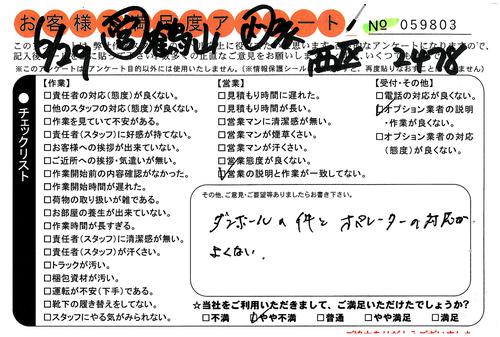 お客様満足度アンケート
No 059803
6/29
西区 2478
※このアンケートはアンケート目的以外には使用いたしません。
チェックリスト
【作業】
□責任者の対応(態度)が良くない。
□他のスタッフの対応(態度)が良くない。
□作業を見ていて不安がある。
□責任者(スタッフ)に好感が持てない。
□お客様への挨拶が出来ていない。
□ご近所への挨拶・気遣いが無い。
□作業開始前の内容確認がなかった。
□作業開始時間が遅れた。
□荷物の取り扱いが雑である。
□お部屋の養生が出来ていない。
□作業時間が長すぎる。
□責任者(スタッフ)に清潔感が無い。
□責任者(スタッフ)が汗くさい。
□トラックが汚い。
□梱包資材が汚い。
□運転が不安(下手)である。
□靴下の履き替えをしてない。
□スタッフにやる気がみられない。
【営業】
□見積もり時間に遅れた。
□見積もり時間が長い。
□営業マンに清潔感が無い。
□営業マンが煙草くさい。
□営業マンが汗くさい。
□営業態度が良くない。
□営業の説明と作業が一致してない。
【受付・その他】
□電話の対応が良くない。
□オプション業者の説明
・作業が良くない。
□オプション業者の対応
(態度)が良くない。
その他、ご意見・ご要望等ありましたらお書き下さい。
ダンボールの件とオペレーターの対応が
よくない。
☆当社をご利用いただきまして、ご満足いただけたでしょうか?
□不満 □やや不満 □普通 □やや満足 □満足